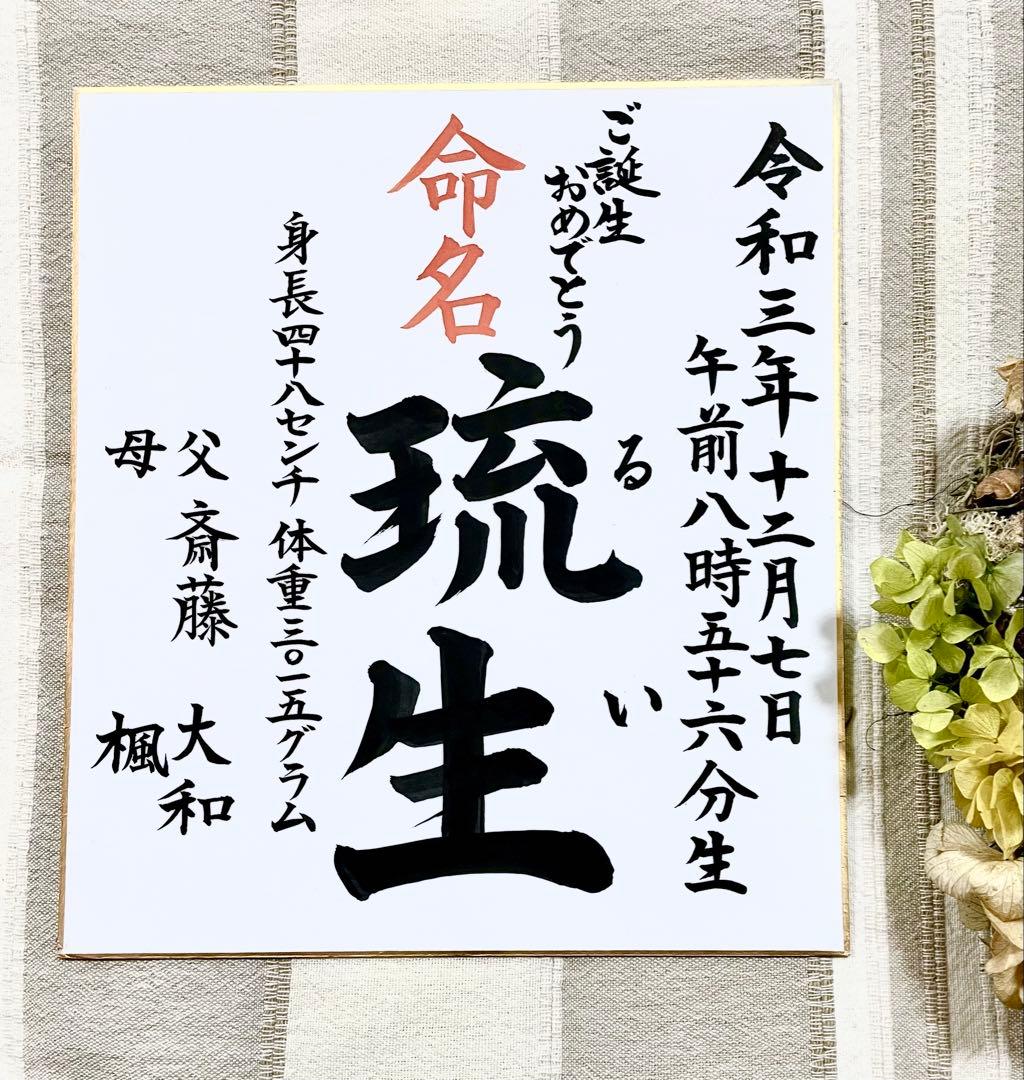 令和三年十二月七日
午前八時五十六分生
ご誕生
おめでとう
命名
琉生
るい
身長四十八センチ 体重三〇一五グラム
父 斎藤 大和
母 楓